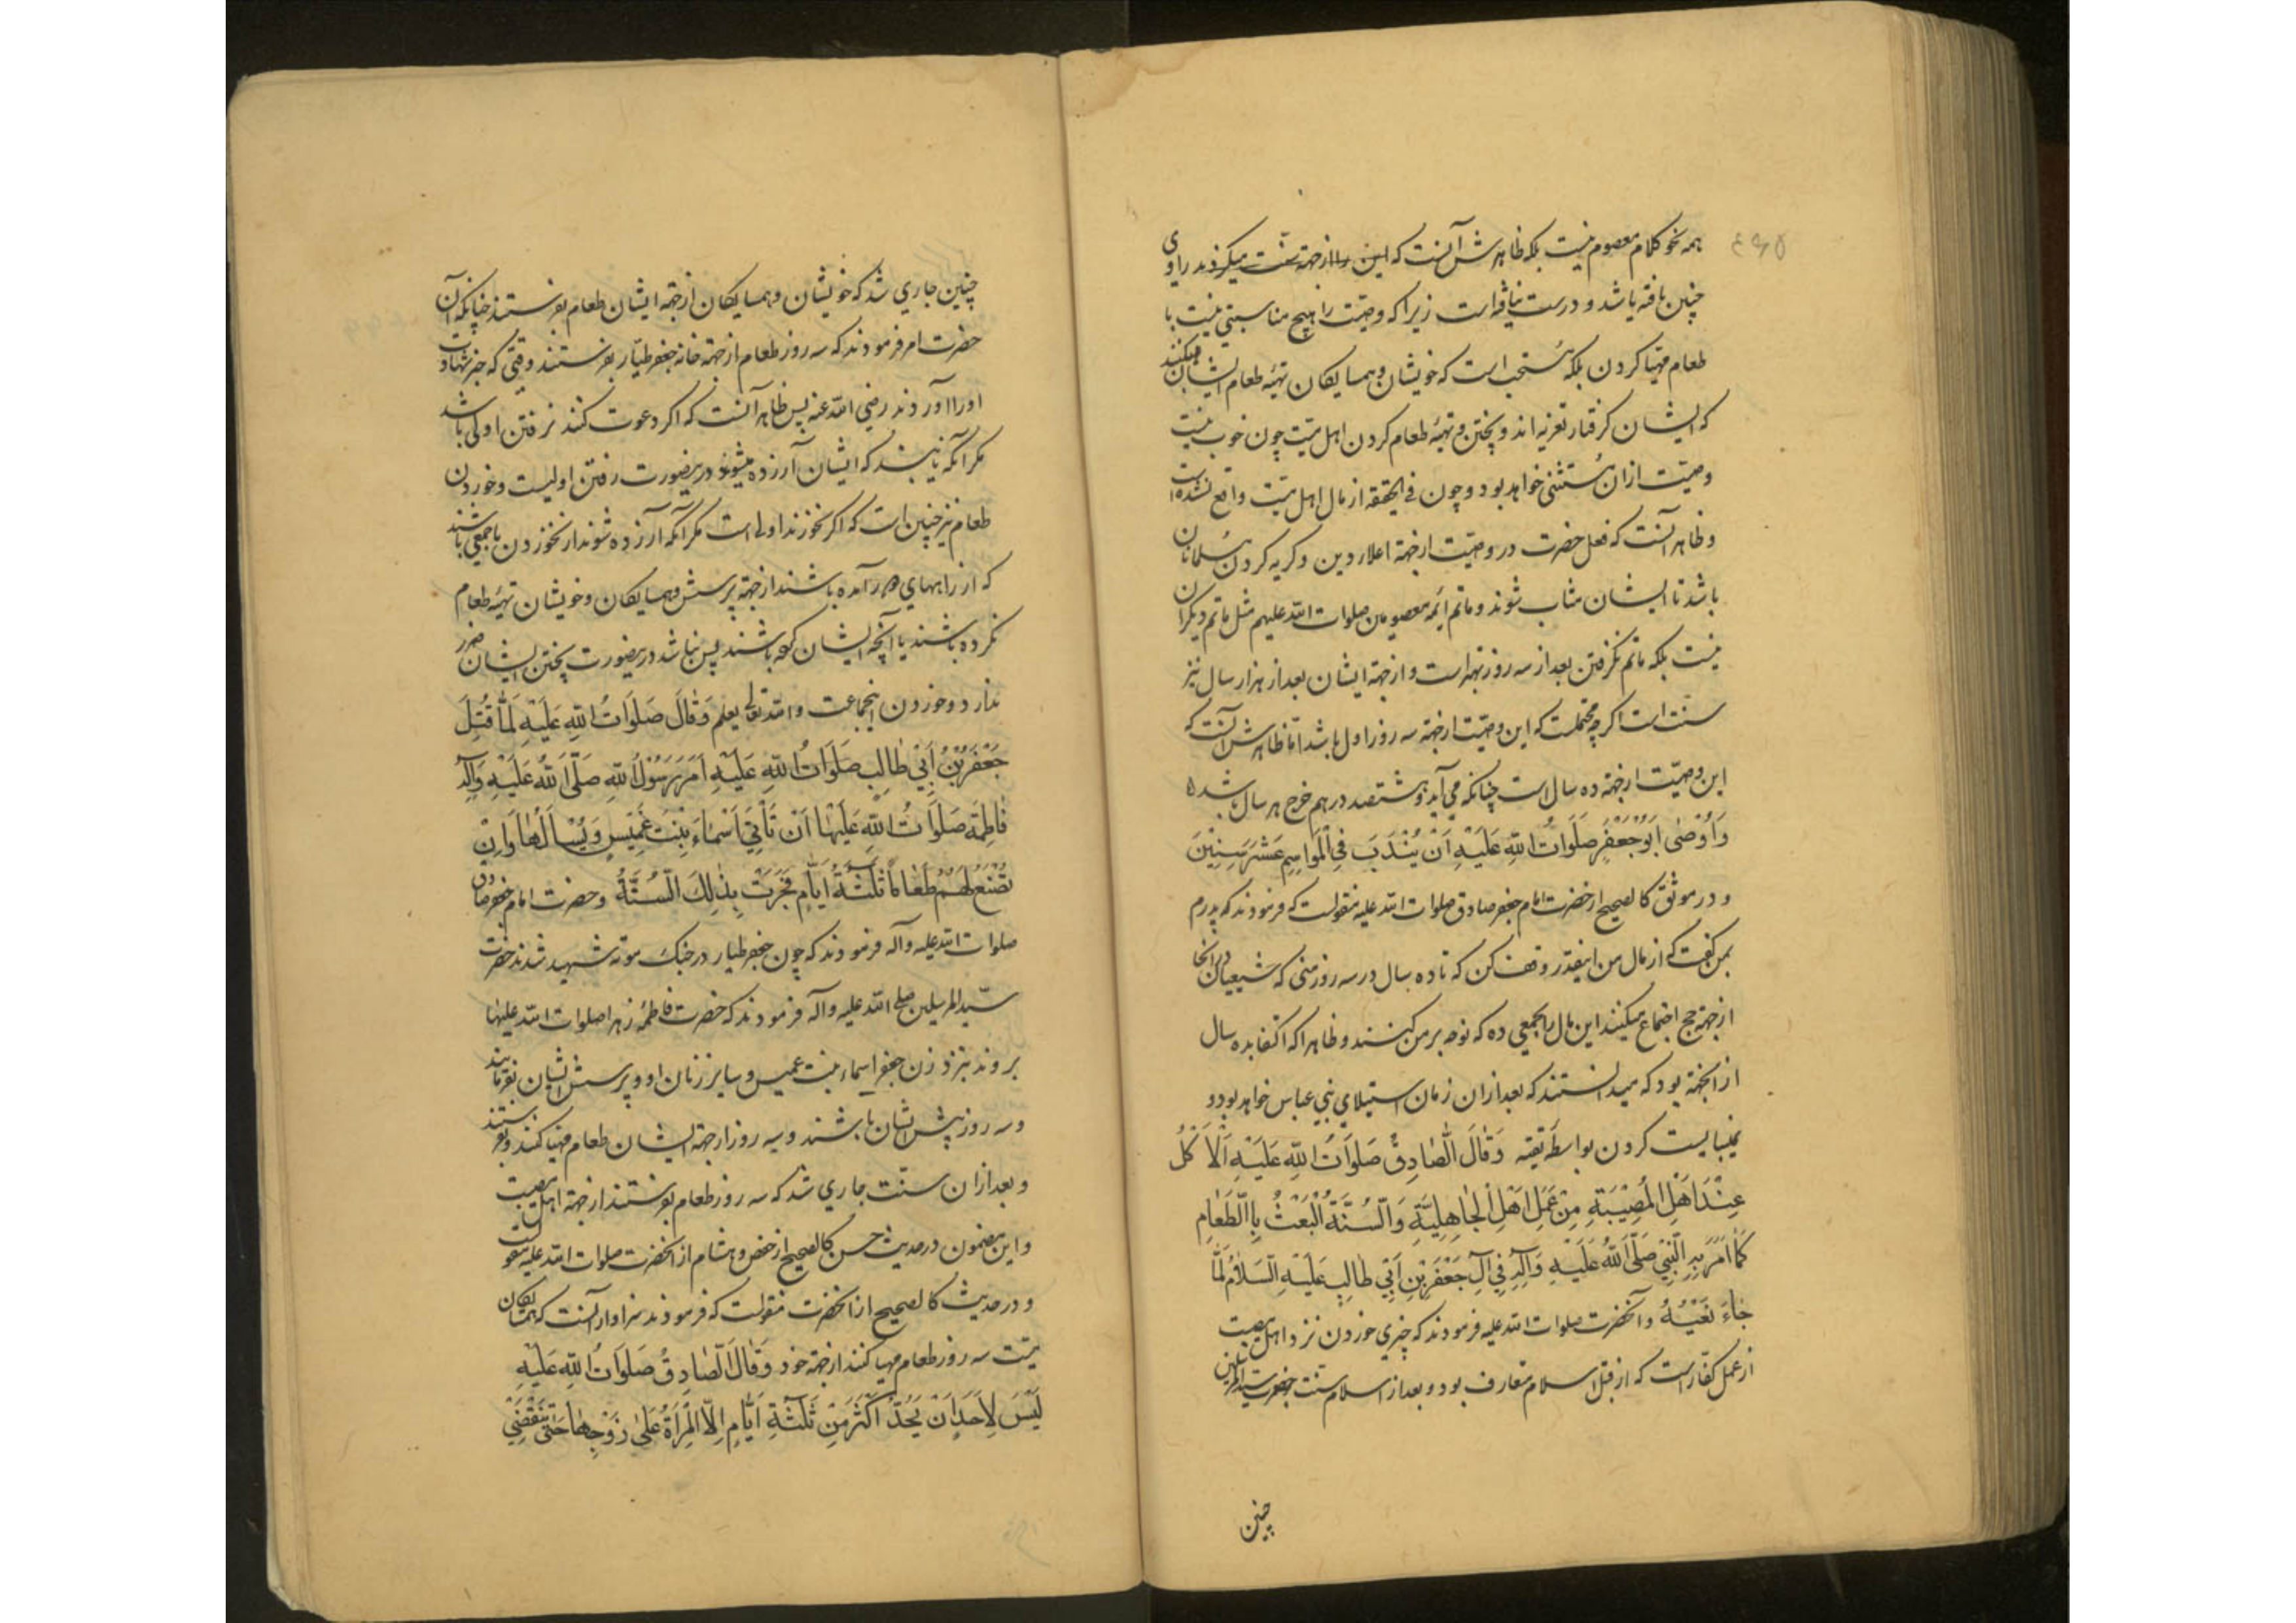 همه نحو کلام معصوم نیست بلکه ظاهرش آنست که این را از جهة سنت میکردند راوی
چنین یافته باشد و درست نیافته است زیرا که وصیّت را هیچ مناسبتی نیست با
طعام مهیّا کردن بلکه مُستحب است که خویشان و همسایکان تهیّه طعام ایشان میکنند
که ایشان کرفتار تعزیه اند و پختن و تهیّه طعام کردن اهل میّت چون خوب نیست
وصیّت ازان مُستثنی خواهد بود و چون فی الحقیقه از مال اهل میّت واقع نشده است
و ظاهر آنست که فعل حضرت در وصیّت از جهة اعلاء دین و کریه کردن مُسلمانان
باشد تا ایشان مثاب شوند و ماتم ائمه معصومین صلوات الله علیهم مثل ماتم دیکران
نیست بلکه ماتم نکرفتن بعد از سه روز بهتر است و از جهة ایشان بعد از هزار سال نیز
سنّت است اکرچه محتملست که این وصیّت از جهة سه روز اول باشد امّا ظاهرش آنست که
این وصیّت از جهة ده سال است چنانکه می آید و هشتصد درهم خرج هر سال باشد ه
وَاَوْصٰی اَبُوجَعْفَرٍ صَلَوَاتُ اللّٰهِ عَلَیْهِ اَنْ یُنْدَبَ فِی الْمَوَاسِمِ عَشْرَ سِنِیْنَ
و در موثق کالصحیح از حضرت امام جعفر صادق صلوات الله علیه منقولست که فرمودند که پدرم
بمن کفت که از مال من اینقدر وقف کن که تا ده سال در سه روز منی که شیعیان در انجا
از جهة حج اجتماع میکنند این مال را بجمعی ده که نوحه بر من کنند و ظاهرا که اکتفا بده سال
از انجهة بود که میدانستند که بعد ازان زمان استیلای بنی عباس خواهد بود و
نمیبایست کردن بواسطه تقیّه وَقَالَ الصّٰادِقُ صَلَوَاتُ اللّٰهِ عَلَیْهِ اَلْاَکْلُ
عِنْدَ اَهْلِ الْمُصِیْبَةِ مِنْ عَمَلِ اَهْلِ الْجٰاهِلِیَّةِ وَالسُّنَّةُ الْبَعْثُ بِالطَّعٰامِ
کَمٰا اَمَرَ بِهِ النَّبِیُّ صَلَّی اللّٰهُ عَلَیْهِ وَآلِهِ فِی آلِ جَعْفَرِ بْنِ اَبِی طٰالِبٍ عَلَیْهِ السَّلَامُ لَمّٰا
جٰاءَ نَعْیُهُ و آنحضرت صلوات الله علیه فرمودند که چیزی خوردن نزد اهل مصیبت
از عمل کفار است که از قبل اسلام متعارف بود و بعد از اسلام سنت حضرت سید المرسلین
چنین
چنین جاری شد که خویشان و همسایکان از جهة ایشان طعام بفرستند چنانکه آن
حضرت امر فرمودند که سه روز طعام از جهة خانه جعفر طیّار بفرستند وقتی که خبر شهادت
اورا آوردند رضی الله عنه پس ظاهرا آنست که اکر دعوت کنند نرفتن اولی باشد
مکر آنکه یابند که ایشان آزرده میشوند درینصورت رفتن اولیست و خوردن
طعام نیز چنین است که اکر نخورند اولی است مکر آنکه آزرده شوند از نخوردن یا جمعی باشند
که از راههای دور آمده باشند از جهة پرسش و همسایکان و خویشان تهیّه طعام
نکرده باشند یا آنچه ایشان کرده باشند پس نباشد درینصورت پختن ایشان ضرر
ندارد و خوردن اینجماعت و الله تعالی یعلم وَقٰالَ صَلَوَاتُ اللّٰهِ عَلَیْهِ لَمّٰا قُتِلَ
جَعْفَرُ بْنُ اَبِی طٰالِبٍ صَلَوَاتُ اللّٰهِ عَلَیْهِ اَمَرَ رَسُوْلُ اللّٰهِ صَلَّی اللّٰهُ عَلَیْهِ وَآلِهِ
فٰاطِمَةَ صَلَوَاتُ اللّٰهِ عَلَیْهٰا اَنْ تَأْتِیَ اَسْمٰاءَ بِنْتَ عُمَیْسٍ وَیُسْأَلَهٰا وَاَنْ
تَصْنَعَ لَهُمْ طَعٰاماً ثَلٰثَةَ اَیّٰامٍ فَجَرَتْ بِذٰلِکَ السُّنَّةُ و حضرت امام جعفر صادق
صلوات الله علیه وآله فرمودند که چون جعفر طیار در جنک موته شهید شدند حضرت
سیّد المرسلین صلی الله علیه وآله فرمودند که حضرت فاطمه زهرا صلوات الله علیها
بروند بنزد زن جعفر اسماء بنت عمیس و سایر زنان او و پرسش ایشان بفرمایند
و سه روز پیش ایشان باشند و سه روز از جهة ایشان طعام مهیّا کنند و بفرستند
و بعد ازان سنت جاری شد که سه روز طعام بفرستند از جهة اهل مصیبت
و این مضمون در حدیث حسن کالصحیح از حفص و هشام از آنحضرت صلوات الله علیه منقولست
و در حدیث کالصحیح از آنحضرت منقولست که فرمودند سزاوار آنست که همسایکان
میّت سه روز طعام مهیا کنند از جهة خود وَقٰالَ الصّٰادِقُ صَلَوَاتُ اللّٰهِ عَلَیْهِ
لَیْسَ لِاَحَدٍ اَنْ یَحُدَّ اَکْثَرَ مِنْ ثَلٰثَةِ اَیّٰامٍ اِلَّا الْمَرْاَةُ عَلٰی زَوْجِهٰا حَتّٰی تَنْقَضِیَ